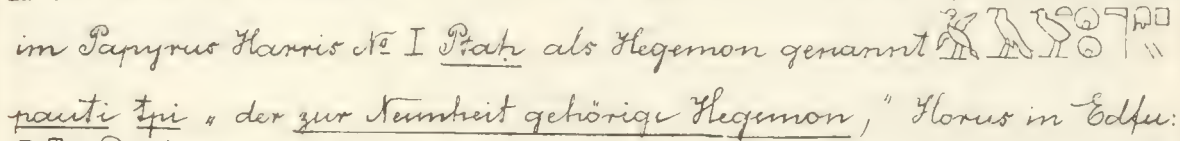 im Papyrus Harris № I Ptaḥ als Hegemon genannt
pauti tpi „ der zur Neunheit gehörige Hegemon, " Horus in Edfu: